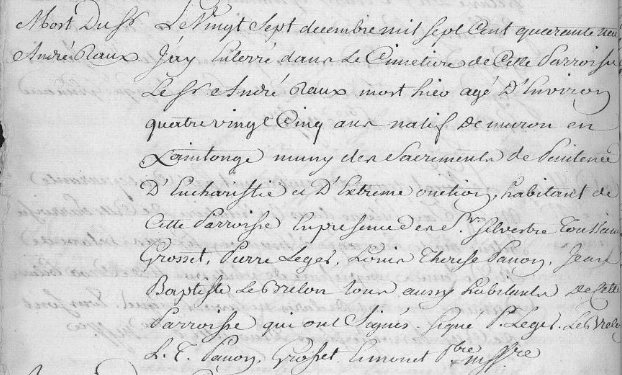 Mort Du Sr. Le Vingt Sept decembre mil Sept Cent quarante neuf
André Raux Jay Enterré dans Le Cimetiere de Cette Parroisse
Le Sr. André Raux mort hier agé D'Environ
quatre vingt Cinq ans natif De muron en
Xaintonge muny des Sacrements de Penitence
D'Eucharistie et D'Extreme onction, habitant de
Cette Parroisse En presence des Srs. Silvestre Toussaint
Grosset, Pierre Leger, Louis Therese Panon, Jean
Baptiste Le Breton tous aussy habitants De Cette
Parroisse qui ont Signés. Signé P. Leger. Le Breton
L. T. Panon, Grosset Pbre